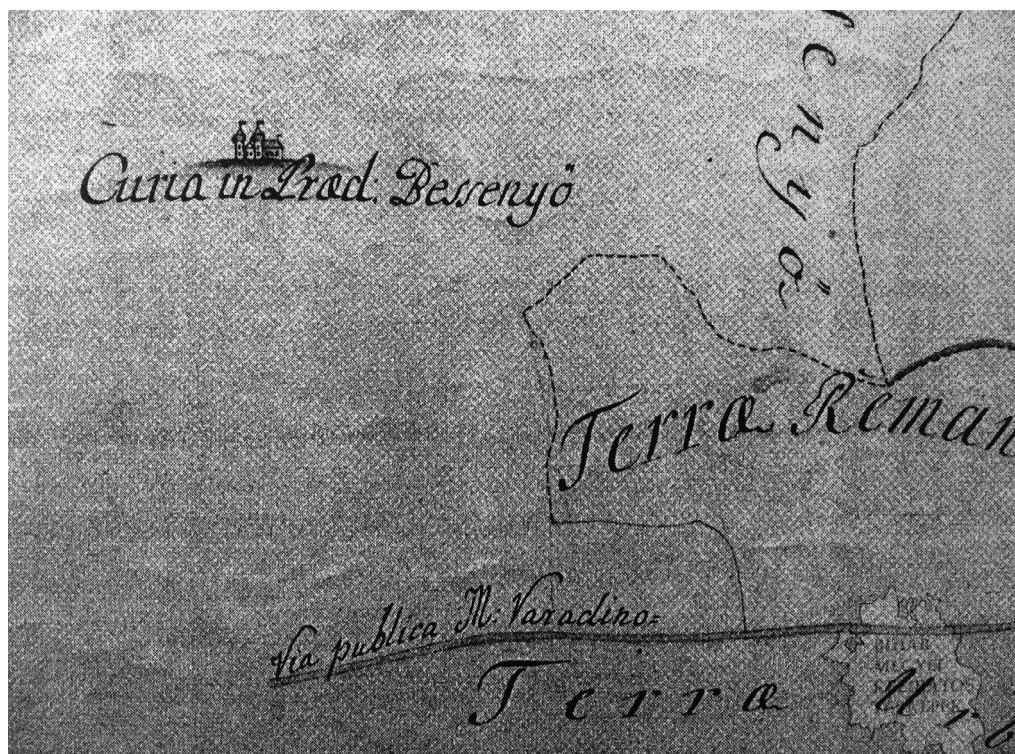 Curia in Præd: Bessenyö
enyö
Terræ Reman
Via publica M: Varadino=
Terræ Ur